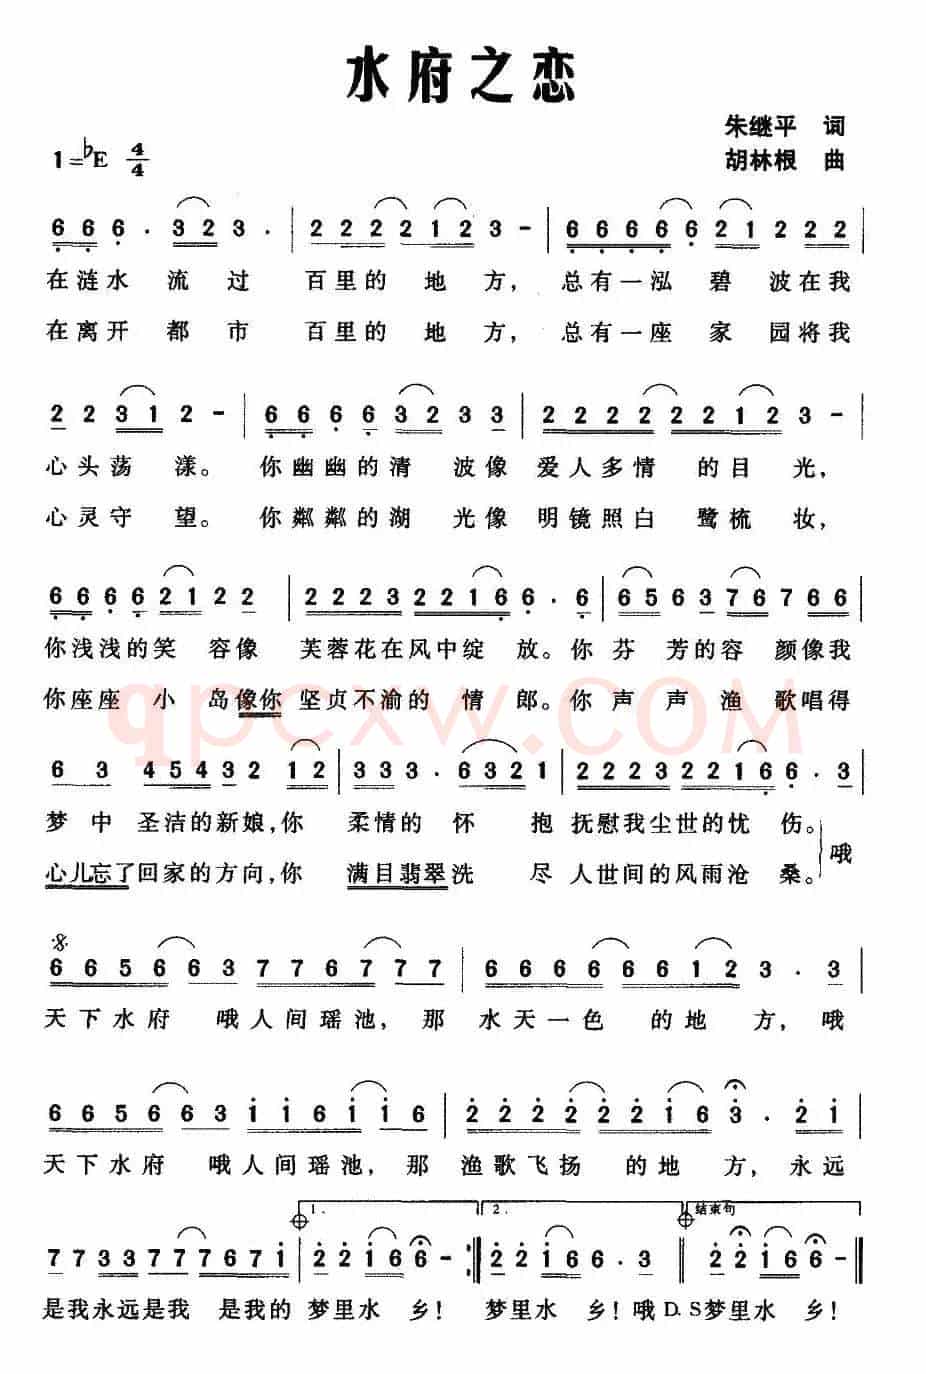 水府之恋
朱继平 词
1=♭E 4/4
胡林根 曲
6 6 6 · 3 2 3 · | 2 2 2 2 1 2 3 - | 6 6 6 6 6 2 1 2 2 2 |
在涟水 流 过 百里的 地 方，总有一泓 碧 波在我
在离开 都 市 百里的 地 方，总有一座 家 园将我
2 2 3 1 2 - | 6 6 6 6 3 2 3 3 | 2 2 2 2 2 2 1 2 3 - |
心头荡 漾。你幽幽的清 波像 爱人多情 的目 光，
心灵守 望。你粼粼的湖 光像 明镜照白 鹭梳 妆，
6 6 6 6 2 1 2 2 | 2 2 2 3 2 2 1 6 6 · 6 | 6 5 6 3 7 6 7 6 6 |
你浅浅的笑 容像 芙蓉花在风中绽 放。你 芬 芳的容 颜像我
你座座 小 岛像你 坚贞不渝的 情 郎。你 声 声 渔 歌唱得
qpcxw.com
6 3 4 5 4 3 2 1 2 | 3 3 3 · 6 3 2 1 | 2 2 2 3 2 2 1 6 6 · 3 |
梦 中 圣洁的新娘，你 柔情的 怀 抱 抚慰我尘世的忧 伤。
哦
心儿忘了回家的方向，你 满目翡翠洗 尽 人世间的风雨沧 桑。
6 6 5 6 6 3 7 7 6 7 7 7 | 6 6 6 6 6 6 1 2 3 · 3 |
天下水府 哦人间瑶池，那 水天一色 的地 方，哦
6 6 5 6 6 3 1 1 6 1 1 6 | 2 2 2 2 2 2 1 6 3 · 2 1 |
天下水府 哦人间瑶池，那 渔歌飞扬 的地 方，永远
1. 2. 结束句
7 7 3 3 7 7 7 6 7 1 | 2 2 1 6 6 - :| 2 2 1 6 6 · 3 || 2 2 1 6 6 - ||
是我永远是我 是我的 梦里水 乡！ 梦里水 乡！哦D.S梦里水 乡！